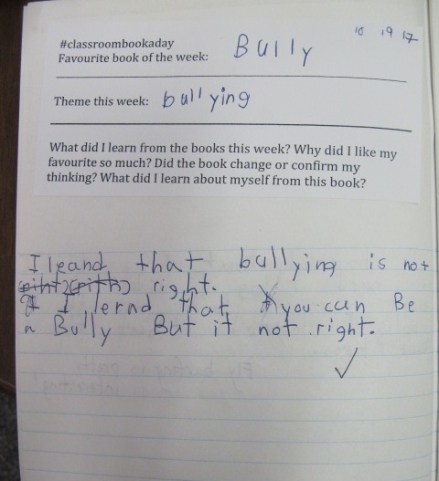 10 19 17
#classroombookaday
Favourite book of the week: Bully
Theme this week: bullying
What did I learn from the books this week? Why did I like my
favourite so much? Did the book change or confirm my
thinking? What did I learn about myself from this book?
I leand that bullying is not
right.
I lernd that you can Be
a Bully But it not right.